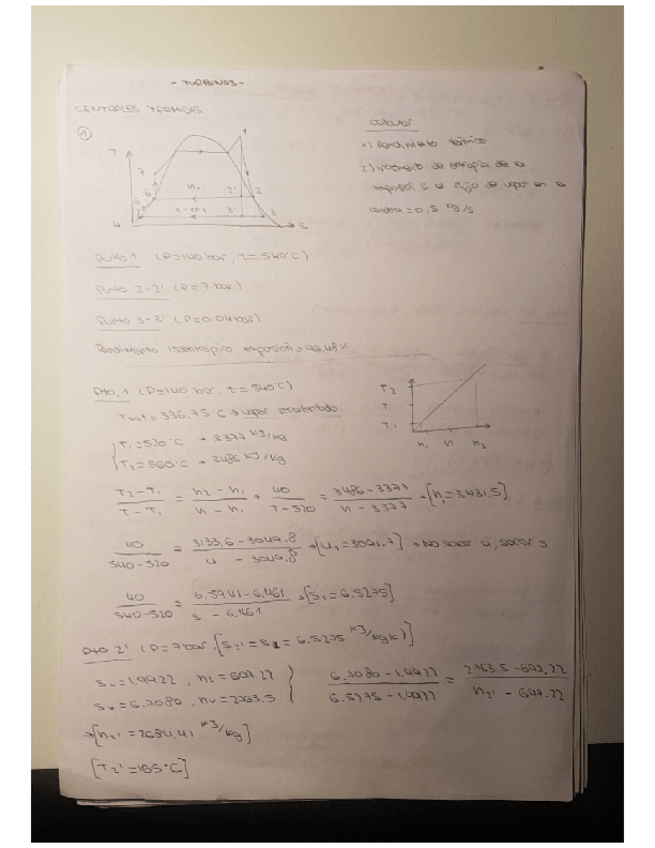 - TURBINAS -
CENTRALES TERMICAS
①
Calcular
1) Rendimiento térmico
2) incremento de entropia de la
expansión si el flujo de vapor en la
caldera = 0,5 kg/s
T
1
7
6
m₁
2' 2
1-m₁
3' 3
4
s
Punto 1 (P=140 bar, t=540°C)
Punto 2-2' (P=7 bar)
Punto 3-3' (P=0.04 bar)
Rendimiento isoentrópico expansión =
Pto. 1 (P=140 bar, t=540°C)
Tsat = 336.75°C → vapor recalentado
T₁=520°C → 3377 kJ/kg
T₂=560°C → 3486 kJ/kg
T₂
T
T₁
h₁ h h₂
T₂-T₁ / T-T₁ = h₂-h₁ / h-h₁ → 40 / T-520 = 3486-3377 / h-3377 → [h₁=3431.5]
40 / 540-520 = 3133.6-3049.8 / u-3049.8 → [u₁=3091.7] → No sacar u, sacar s
40 / 540-520 = 6.5941-6.461 / s-6.461 → [s₁=6.5275]
Pto 2' (P=7 bar, [s₂'=s₁=6.5275 kJ/kgK)]
sL=1.9922, hL=697.22
sv=6.7080, hv=2763.5
6.7080-1.9922 / 6.5275-1.9922 = 2763.5-697.22 / h₂'-697.22
→[h₂'=2684.41 kJ/kg]
[T₂'=165°C]